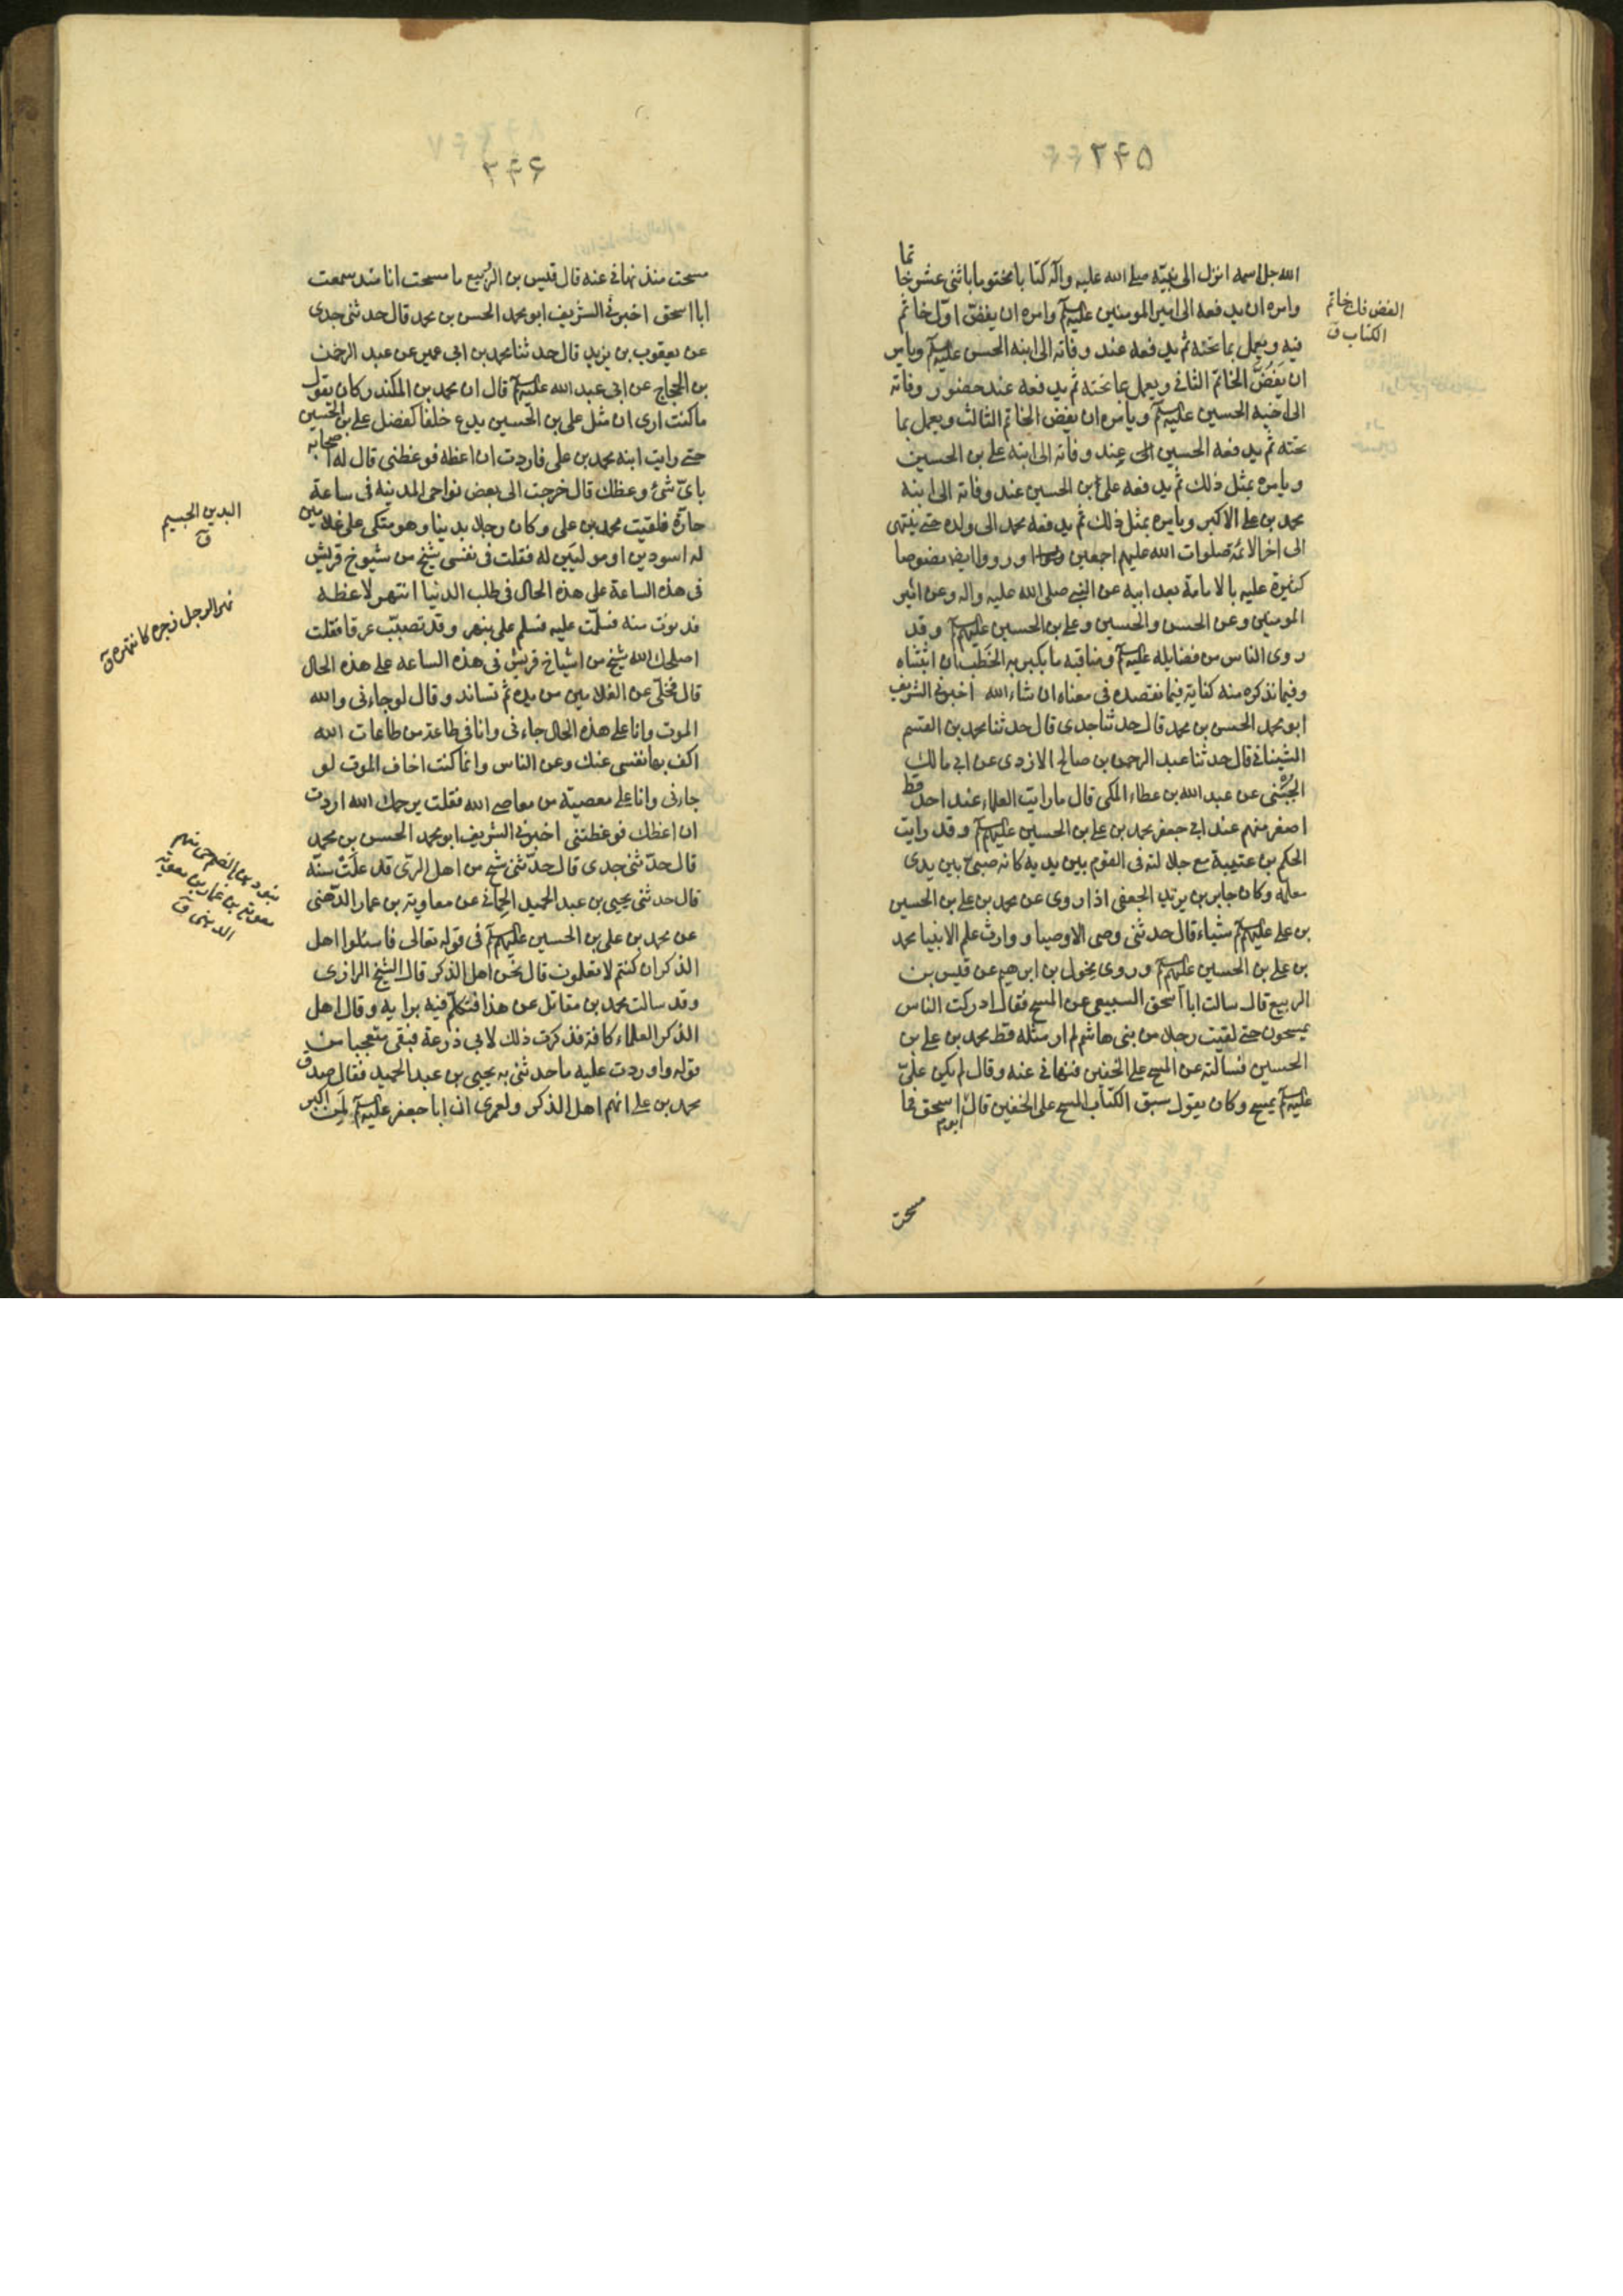 ۳۴۵
الله جل اسمه انزل الى نبيّه صلى الله عليه وآله كتابا مختوما باثنى عشر خاتما
وامره ان يدفعه الى امير المومنين عليه السلم وامره ان يفضّ اوّل خاتم
فيه ويعمل بما تحته ثم يدفعه عند وفاته الى ابنه الحسن عليه السلم ويامر
ان يَفُضّ الخاتم الثانى ويعمل بما تحته ثم يدفعه عند حضور وفاته
الى اخيه الحسين عليه السلم ويامره ان يفض الخاتم الثالث ويعمل بما
تحته ثم يدفعه الحسين عند وفاته الى ابنه على بن الحسين
ويامره بمثل ذلك ثم يدفعه على بن الحسين عند وفاته الى ابنه
محمد بن على الاكبر ويامره بمثل ذلك ثم يدفعه محمد الى ولده حتى ينتهى
الى اخر الائمة صلوات الله عليهم اجمعين ورووا ايضا نصوصا
كثيرة عليه بالامامة بعد ابيه عن النبى صلى الله عليه واله وعن امير
المومنين وعن الحسن والحسين وعلى بن الحسين عليهم السلم وقد
روى الناس من فضايله عليه السلم ومناقبه ما يكبر به الخطب ان اثبتناه
وفيما نذكره منه كفاية فيما نقصده فى معناه ان شاء الله اخبرنى الشريف
ابو محمد الحسن بن محمد قال حدثنا جدى قال حدثنا محمد بن القسم
الشيبانى قال حدثنا عبد الرحمن بن صالح الازدى عن ابى مالك
الجشنى عن عبد الله بن عطاء المكى قال ما رايت العلماء عند احد قط
اصغر منهم عند ابى جعفر محمد بن على بن الحسين عليهم السلم وقد رايت
الحكم بن عتيبة مع جلالته فى القوم بين يديه كانه صبىّ بين يدى
معلمه وكان جابر بن يزيد الجعفى اذا روى عن محمد بن على بن الحسين
بن على عليهم السلم شياء قال حدثنى وصى الاوصيا ووارث علم الانبيا محمد
بن على بن الحسين عليهم السلم وروى مخول بن ابرهيم عن قيس بن
الربيع قال سالت ابا اسحق السبيعى عن المسح فقال ادركت الناس
يمسحون حتى لقيت رجلا من بنى هاشم لم ار مثله قط محمد بن على بن
الحسين فسالته عن المسح على الخفين فنهانى عنه وقال لم يكن علىّ
عليه السلم يمسح وكان يقول سبق الكتاب المسح على الخفين قال ابو اسحق فما
مسحت
الفض فك خاتم
الكتاب ق
۳۴۶
مسحت منذ نهانى عنه قال قيس بن الربيع ما مسحت انا منذ سمعت
ابا اسحق اخبرنى الشريف ابو محمد الحسن بن محمد قال حدثنى جدى
عن يعقوب بن يزيد قال حدثنا محمد بن ابى عمير عن عبد الرحمن
بن الحجاج عن ابى عبد الله عليه السلم قال ان محمد بن المكندر كان يقول
ما كنت ارى ان مثل على بن الحسين يدع خلفا كفضل على بن الحسين
حتى رايت ابنه محمد بن على فاردت ان اعظه فوعظنى قال له اصحابه
باىّ شئ وعظك قال خرجت الى بعض نواحى المدينه فى ساعة
حارّة فلقيت محمد بن على وكان رجلا بدينا وهو متكى على غلامين
له اسودين او موليين له فقلت فى نفسى شيخ من شيوخ قريش
فى هذه الساعة على هذه الحال فى طلب الدنيا لاعظه
فدنوت منه فسلّمت عليه فسلم على بنهر وقد تصبّب عرقا فقلت
اصلحك الله شيخ من اشياخ قريش فى هذه الساعه على هذه الحال
قال فخلّى عن الغلامين من يده ثم تساند وقال لو جاءنى والله
الموت وانا على هذه الحال جاءنى وانا فى طاعة من طاعات الله
اكف بها نفسى عنك وعن الناس وانما كنت اخاف الموت لو
جاءنى وانا على معصية من معاصى الله فقلت يرحمك الله اردت
ان اعظك فوعظتنى اخبرنى الشريف ابو محمد الحسن بن محمد
قال حدّثنى جدى قال حدّثنى شيخ من اهل الرى قد علت سنّه
قال حدثنى يحيى بن عبد الحميد الحمانى عن معاوية بن عمار الدّهنى
عن محمد بن على بن الحسين عليهم السلم فى قوله تعالى فاسئلوا اهل
الذكر ان كنتم لا تعلمون قال نحن اهل الذكر قال الشيخ الرازى
وقد سالت محمد بن مقاتل عن هذا فتكلّم فيه برايه وقال اهل
الذكر العلماء كافة فذكرت ذلك لابى ذرعة فبقى متعجبا من
قوله واوردت عليه ما حدثنى به يحيى بن عبد الحميد فقال صدق
محمد بن على انهم اهل الذكر ولعمرى ان ابا جعفر عليه السلم لمن اكبر
البدين الجسيم
ق
نهر الرجل زجره كانتهره ق
معوية بن عمار بن معوية
الدهنى ق